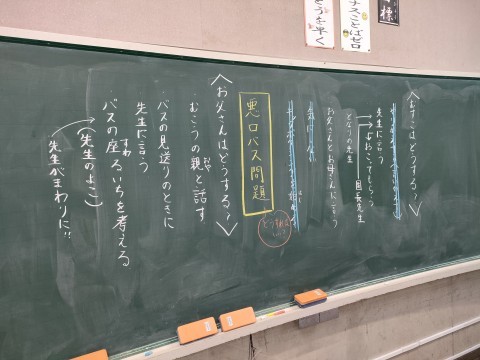 標
ナスことばゼロ
どうを早く
〈むすこはどうする？〉
先生に言う
おこってもらう
となりの先生
園長先生
お父さんとお母さんに言う
悪口バス問題
どうすれば
〈お父さんはどうする？〉
むこうの親と話す
おや
バスの見送りのときに
先生に言う
バスの座るいちを考える
すわ
(先生のよこ)
先生がまわりに!!